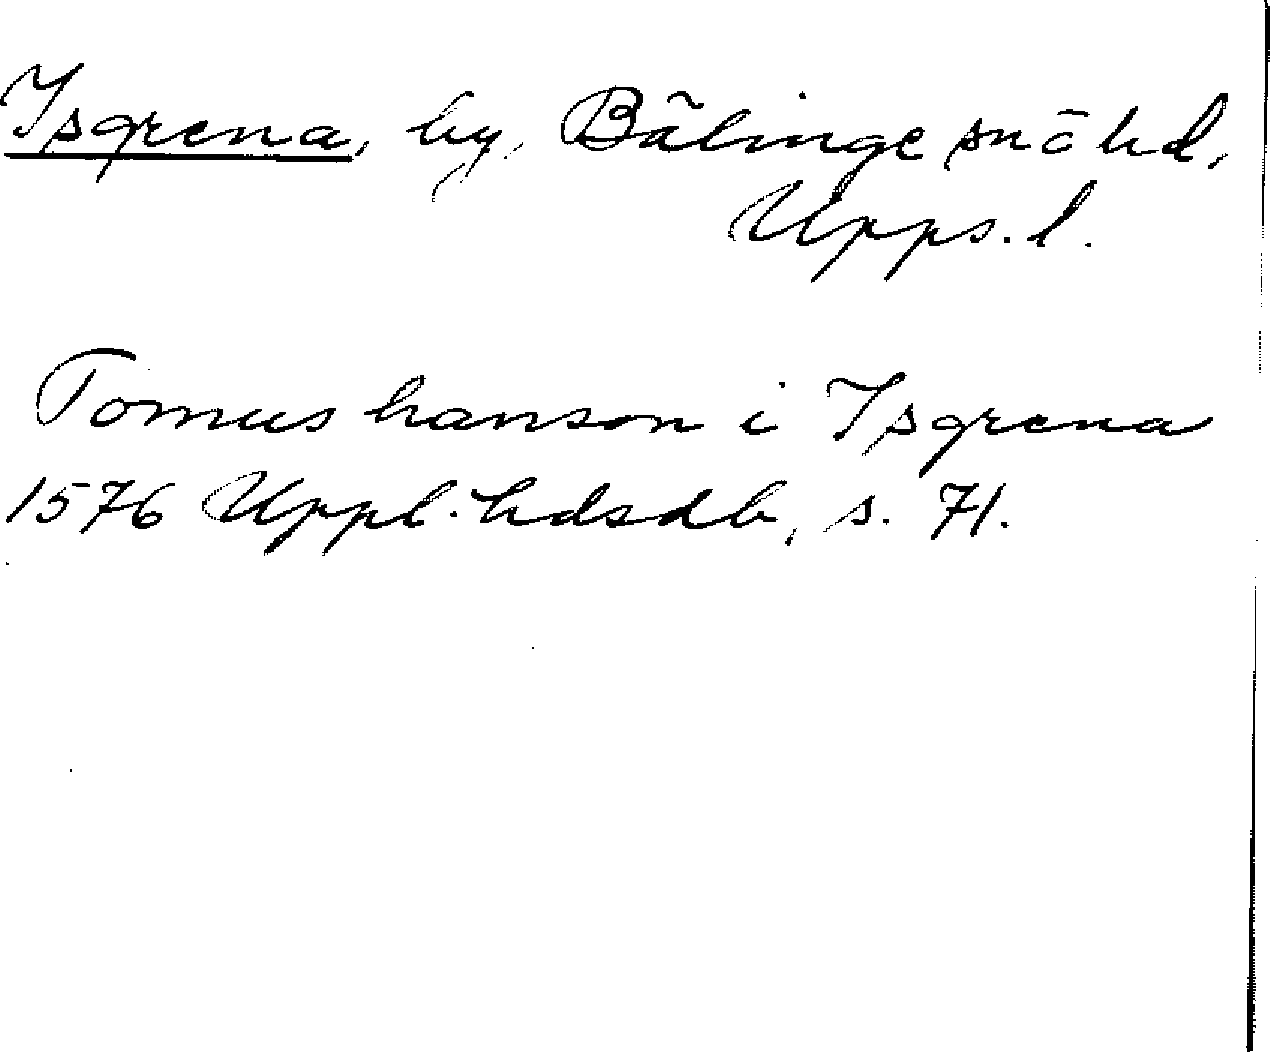 Isgrena, by, Bälinge sn ō hd,
Upps. l.
Tomus hanson i Isgrena
1576 Uppl. hdsdb, s. 71.